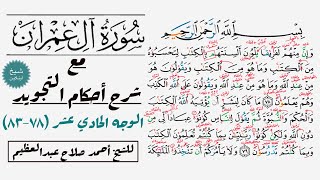 سُورَةُ آلِ عِمْرَان
مع
شرح أحكام التجويد
الوجه الحادي عشر (٧٨-٨٣)
للشيخ أحمد صلاح عبدالعظيم
بِسْمِ اللَّهِ الرَّحْمَٰنِ الرَّحِيمِ
وَإِنَّ مِنْهُمْ لَفَرِيقًا يَلْوُۥنَ أَلْسِنَتَهُم بِالْكِتَٰبِ لِتَحْسَبُوهُ
مِنَ الْكِتَٰبِ وَمَا هُوَ مِنَ الْكِتَٰبِ وَيَقُولُونَ هُوَ
مِنْ عِندِ اللَّهِ وَمَا هُوَ مِنْ عِندِ اللَّهِ وَيَقُولُونَ عَلَى اللَّهِ الْكَذِبَ
وَهُمْ يَعْلَمُونَ ٧٨ مَا كَانَ لِبَشَرٍ أَن يُؤْتِيَهُ اللَّهُ
الْكِتَٰبَ وَالْحُكْمَ وَالنُّبُوَّةَ ثُمَّ يَقُولَ لِلنَّاسِ كُونُوا عِبَادًا لِّي مِن
دُونِ اللَّهِ وَلَٰكِن كُونُوا رَبَّٰنِيِّۦنَ بِمَا كُنتُمْ تُعَلِّمُونَ
الْكِتَٰبَ وَبِمَا كُنتُمْ تَدْرُسُونَ ٧٩ وَلَا يَأْمُرَكُمْ أَن تَتَّخِذُوا الْمَلَٰٓئِكَةَ